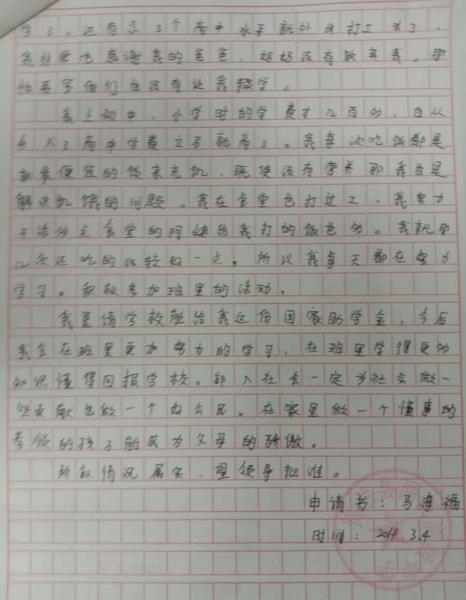 学了。还有念了高中 水平就外出打工去了。
我非常也感谢我的爸爸，妈妈没有放弃我。那
怕再穷他们也没有让我辍学。
我上初中，小学时的学费才几百的，自从
升入了高中学费立马就高了。我每次吃饭都是
拿最便宜的饭来充饥，既使没有营养那我也是
解决饥饿的问题。我在食堂也打过工，我努力
干活的主食堂的阿姨给我打的饭也的。我就那
几天还吃的比较好一点。所以我每天都在努力
学习。积极参加班里的活动。
我恳请学校能给我这份国家助学金，今后
我会在班里更加努力的学习，在班里学得更多
知识懂得回报学校。部入社会一定为社会做一
些贡献也做一个好公民。在家里做一个懂事的
孝顺的孩子能成为父母的骄傲。
所叙情况属实，望领导批准。
申请书：马海福
时间：2019.3.4